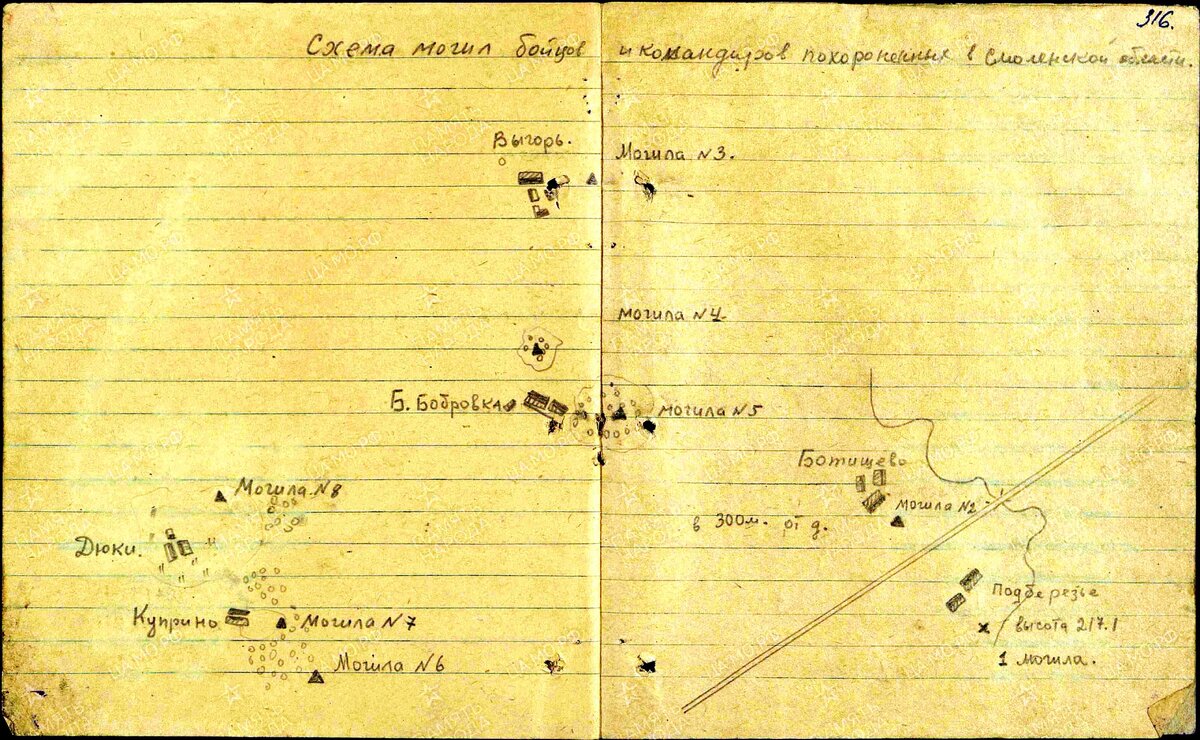 316.
Схема могил бойцов и командиров похороненных в Смоленской области.
Выгорь.
Могила N3.
могила N4.
Б. Бобровка
могила N5
Ботищево
Могила N8
могила N2
в 300м. от д.
Дюки.
Подберезье
Куприно
Могила N7
высота 217.1
1 могила.
Могила N6